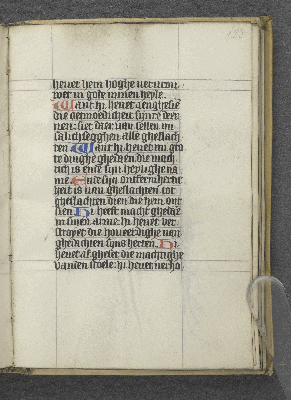 heuet hem hoghe veruout
wet in gode minen heyle.
Want hi heuet aenghesie
die oetmoedicheit sijnre deer
nen: siet daer van sellen mi
salich segghen alle gheslach
ten Want hi heuet mi gro
te dinghe ghedaen die mach
tich is ende sijn heylighe na
me Ende sijn ontfermhertic
heit is van gheslachten tot
gheslachten dien die hem ont
sien Hi heeft macht ghedae
in sinen arme: hi heuet ver
stroyet die houeerdighe van
ghedachten sijns herten. Hi
heuet of gheset die machtighe
vanden stoele: hi heuet verho